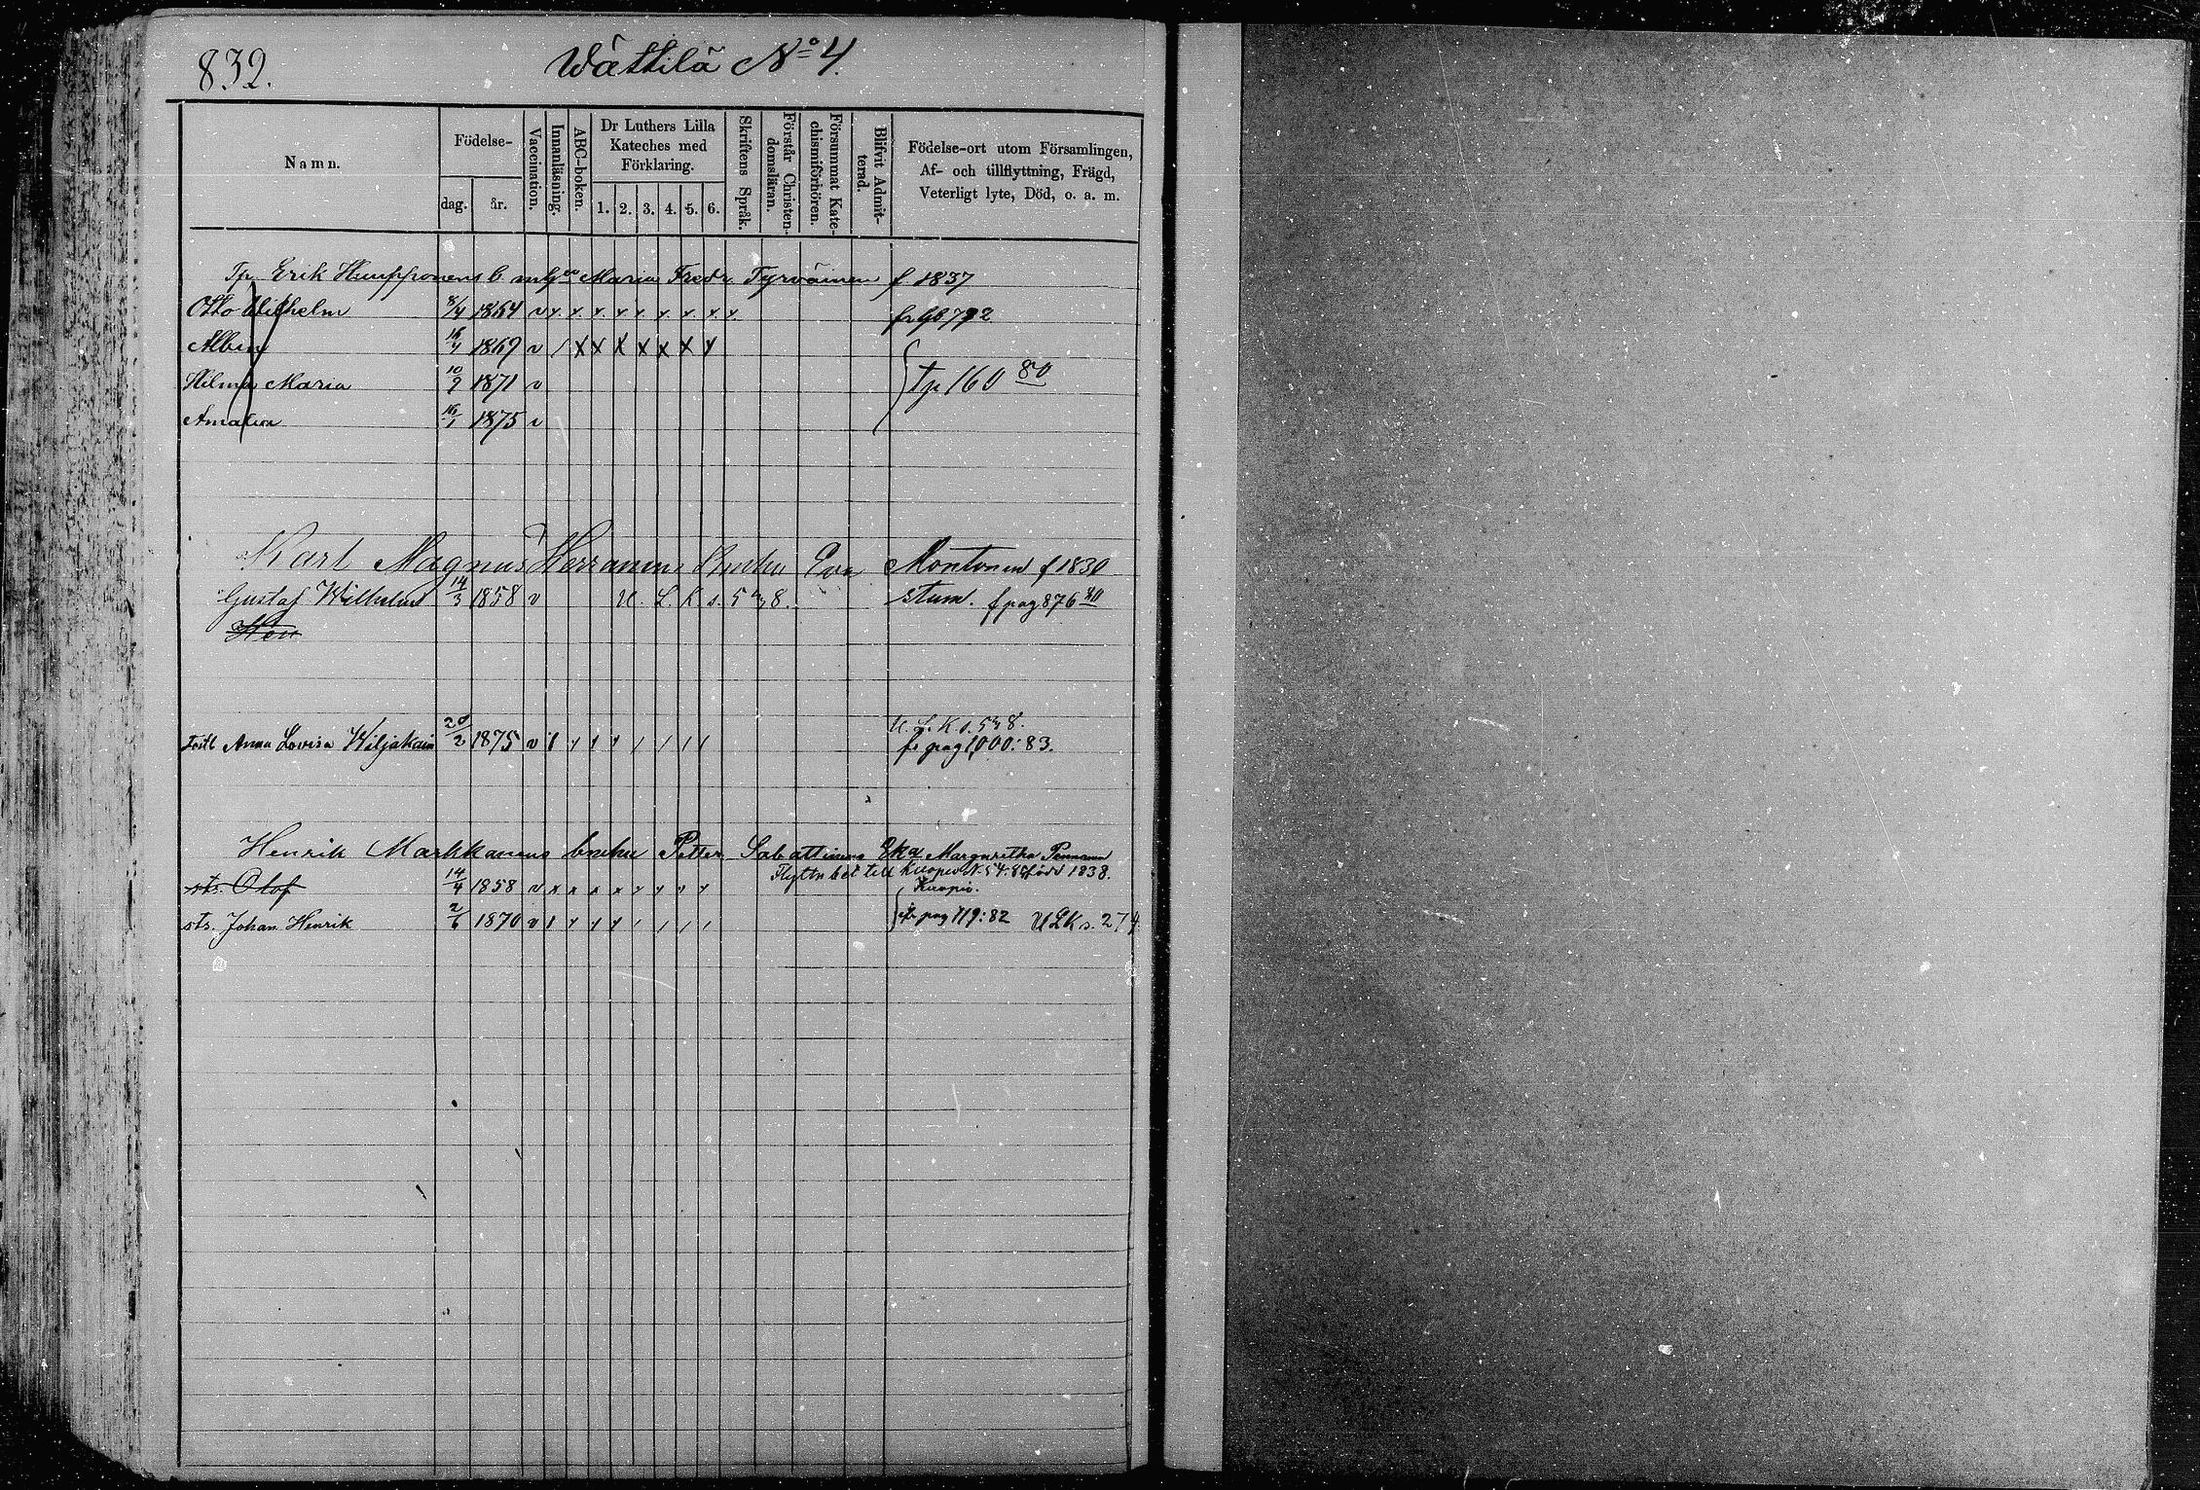 832.
Wättilä No 4.
Namn.
Födelse-
dag.
år.
Vaccination.
Innanläsning.
ABC-boken.
Dr Luthers Lilla
Kateches med
Förklaring.
1. 2. 3. 4. 5. 6.
Skriftens Språk.
Förstår Christen-
domsläran.
Försummat Kate-
chismiförhören.
Blifvit Admit-
terad.
Födelse-ort utom Församlingen,
Af- och tillflyttning, Frägd,
Veterligt lyte, Död, o. a. m.
Tp Erik Huupponens b Maria Fredr. Tyrväinen f 1837
Otto Wilhelm 8/4 1864 v
Albin 16/4 1869 v
Hilma Maria 10/9 1871 v tp 160 80
Amalia 1875 v
Karl Magnus Herranens Enka Eva Montonen f 1830
Gustaf Wilhelm 14/3 1858 v U. L. K s. 5 n 8. stum. f pag 876 80
U. L. K. s. 5 n 8.
Anna Lovisa Wiljakain 20/2 1875 v fr pag 1000: 83.
Henrik Markkanens Petter Sabattinens Eka Margaretha
Flyttn bet till Kuopio N. 54. född 1838.
sts. Olof 14/4 1858 v Kuopio.
sts. Johan Henrik 2/6 1870 v pag 119: 82 U L K s. 274